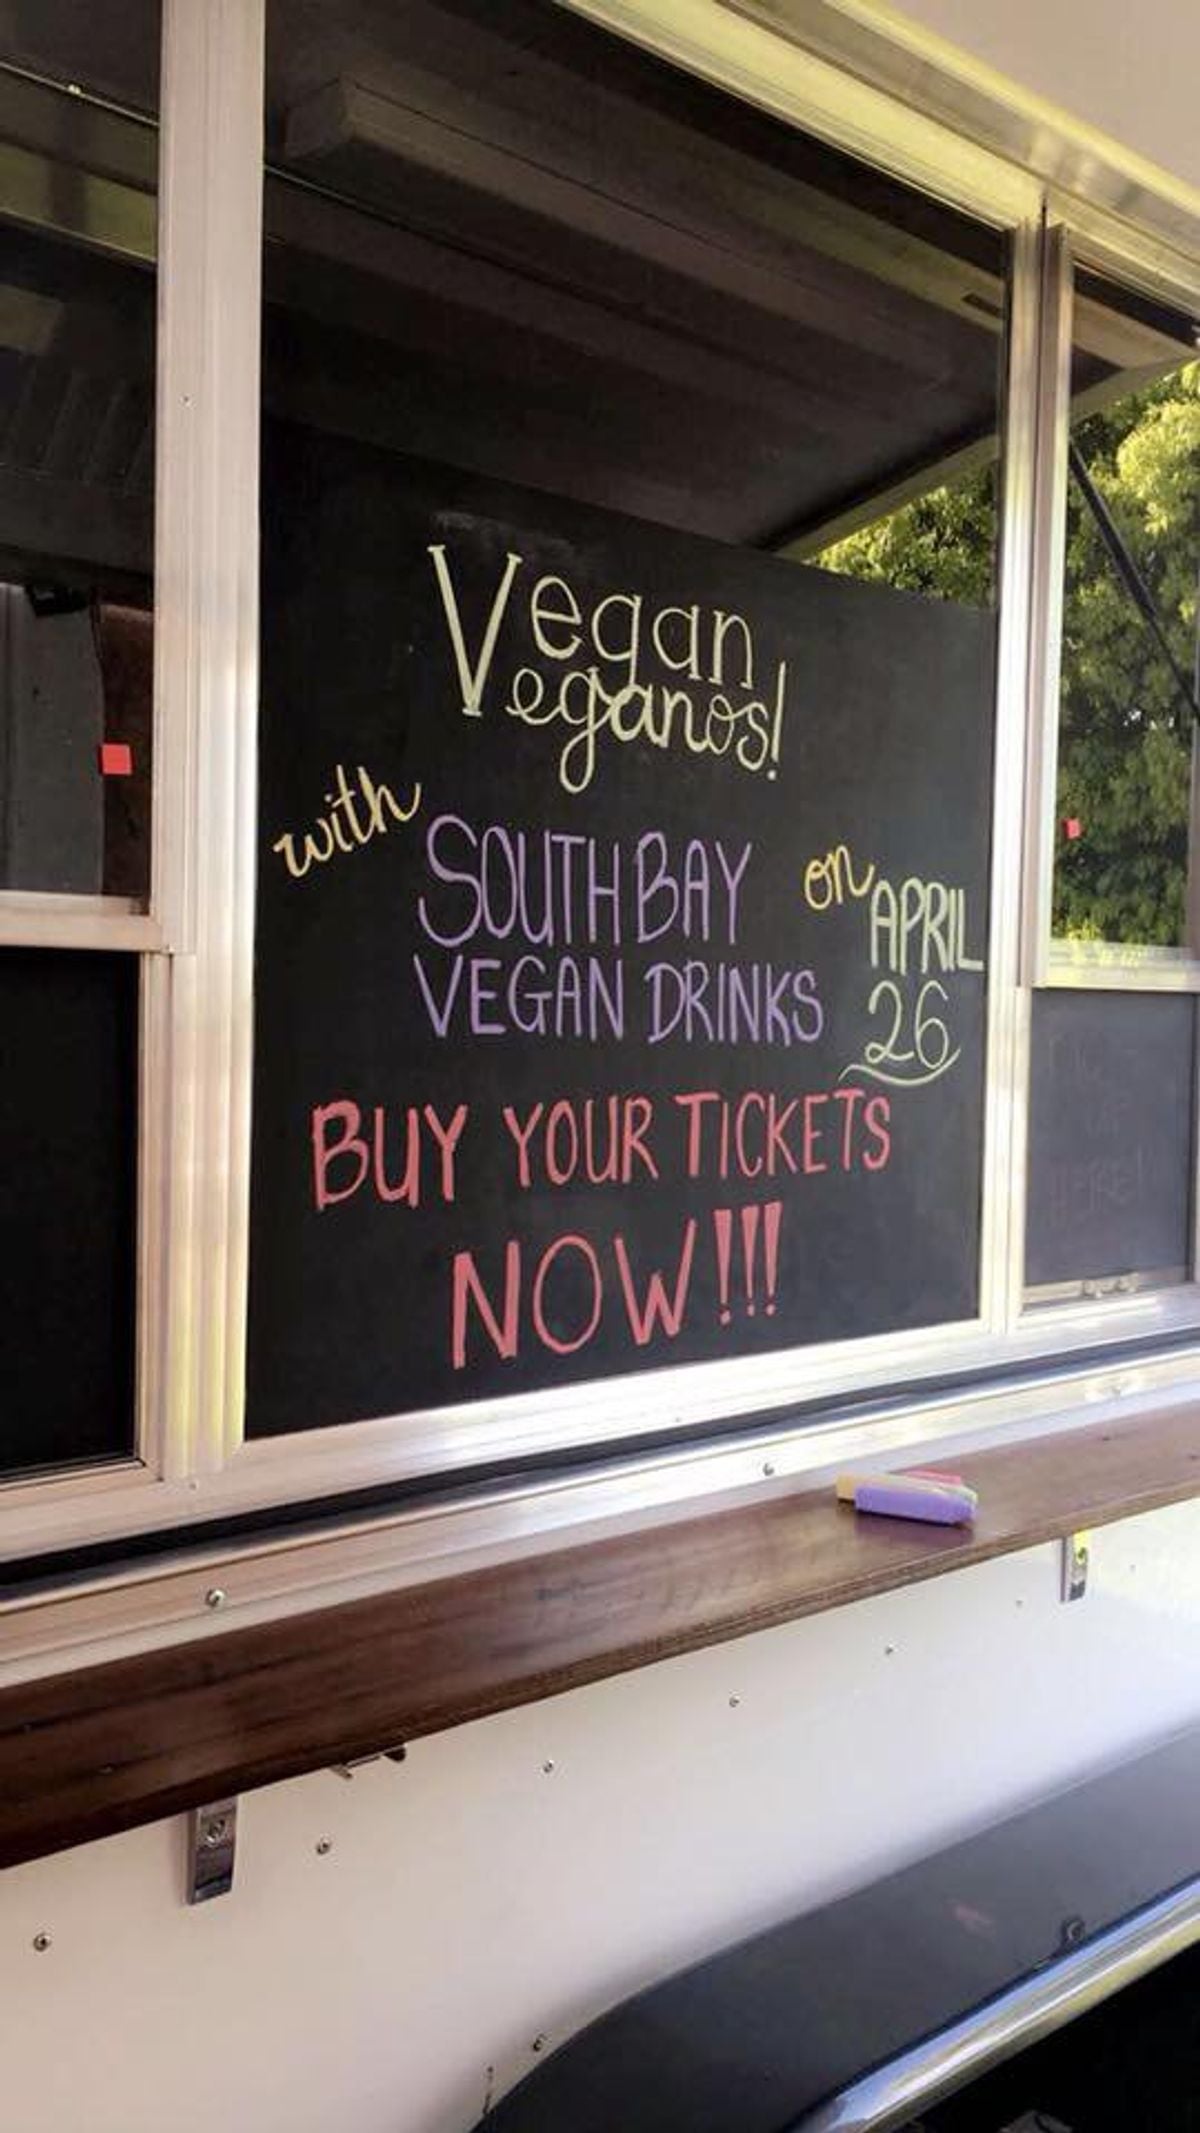 Vegan
Veganos!
with
SOUTH BAY
VEGAN DRINKS
on
APRIL
26
BUY YOUR TICKETS
NOW!!!